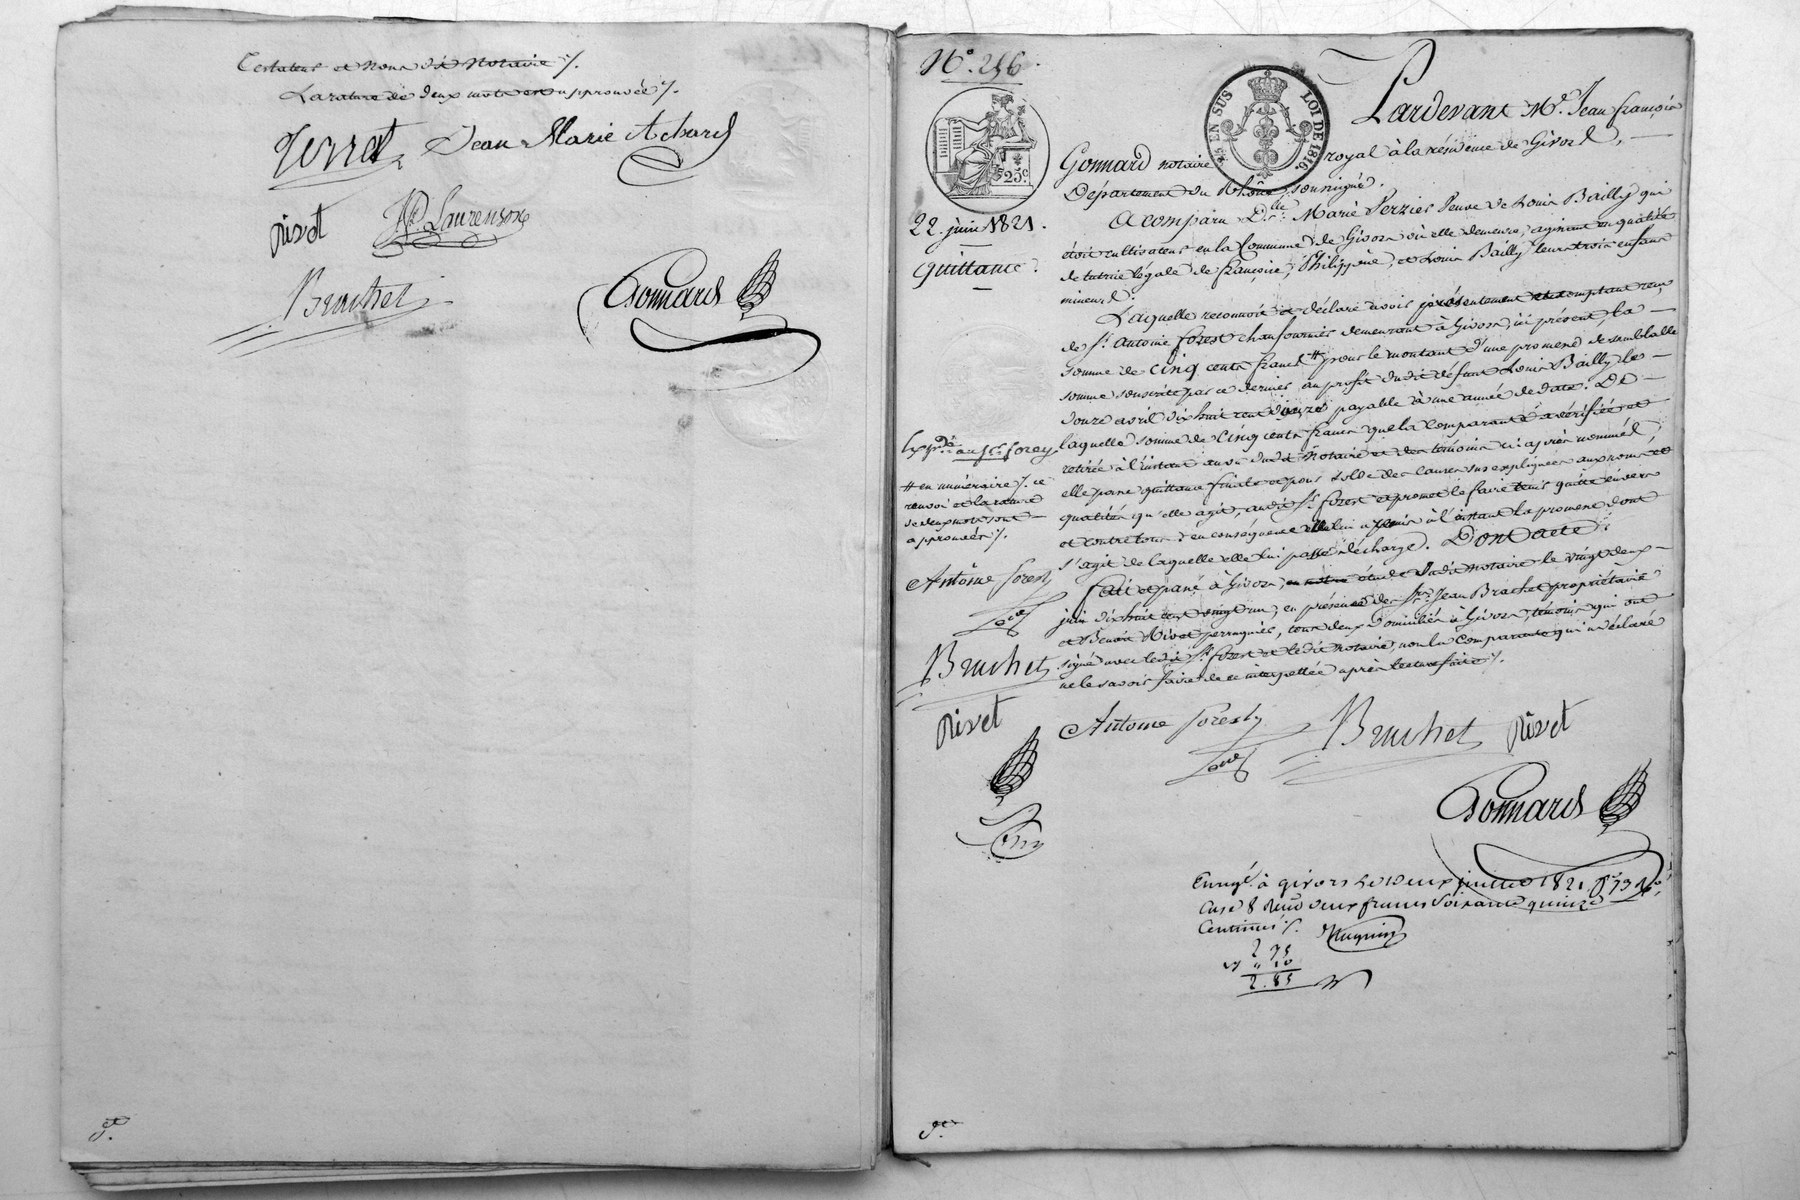 Testateur et nous dit Notaire /.
La rature de deux mots est approuvée /.
Terrat Jean Marie Achard
Rivet JP Laurenson
Bruchet Gonnard
N° 256.
EN SUS LOI DE 1816.
25c
Pardevant Me Jean françois
Gonnard notaire royal à la résidence de Givors,
Département du Rhône, soussigné.
22 juin 1821.
quittance.
A comparu Dlle Marie Perzier Veuve de Louis Bailly qui
étoit cultivateur en la Commune de Givors où elle demeure, agissant en qualité
de tutrice légale de françoise, Philippine, et Louis Bailly leurs trois enfans
mineurs.
Laquelle reconnoit et déclare avoir présentement et comptant reçu
de Sr. Antoine forest chaufournier demeurant à Givors, ici présent, la
somme de cinq cents francs # pour le montant d'une promesse de semblable
somme souscrite par ce dernier au profit dudit défunt Louis Bailly le
douze avril dix huit cent payable à une année de date. De
laquelle somme de cinq cents francs que la comparante a vérifiée et
retirée à l'instant au vu dudit Notaire et des témoins ci après nommés,
elle passe quittance finale et pour solde des causes sus expliquées aux noms et
qualités qu'elle agit, audit Sr. forest et promet le faire tenir quitte envers
et contre tous; en conséquence elle lui a remis à l'instant la promesse dont
s'agit de laquelle elle lui passe décharge. Dont acte.
fait et passé à Givors, en notre étude dudit Notaire le vingt deux
juin dix huit cent vingt un, en présence de Srs Jean Brachet propriétaire
et Benoit Rivet perruquier, tous deux Domiciliés à Givors, témoins qui ont
signé avec ledit Sr. forest et ledit notaire, non la comparante qui a déclaré
ne le savoir faire de ce interpellée après lecture faite /.
Expd. au Sr. forey
# en numéraire /. ce
renvoi et la rature
de deux mots sont
approuvés /.
Antoine forest
Bruchet
Rivet
Antoine forest Bruchet Rivet
Gonnard
Enregé. à givors le deux juillet 1821 fo 73 Ro
Case 8 Reçu deux francs soixante quinze
Centimes /.
2 75
" 10
2.85